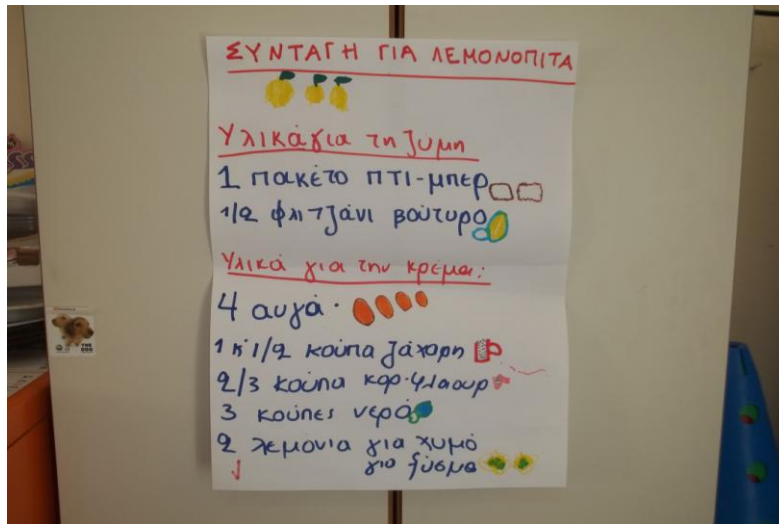 ΣΥΝΤΑΓΗ ΓΙΑ ΛΕΜΟΝΟΠΙΤΑ
Υλικά για τη ζύμη
1 πακέτο ΠΤΙ-μπερ
1/2 φλιτζάνι βούτυρο
Υλικά για την κρέμα:
4 αυγά.
1 κ' 1/2 κούπα ζάχαρη
2/3 κούπα κορ.φλαουρ
3 κούπες νερό
2 λεμόνια για χυμό
για ξύσμα
THE DOG